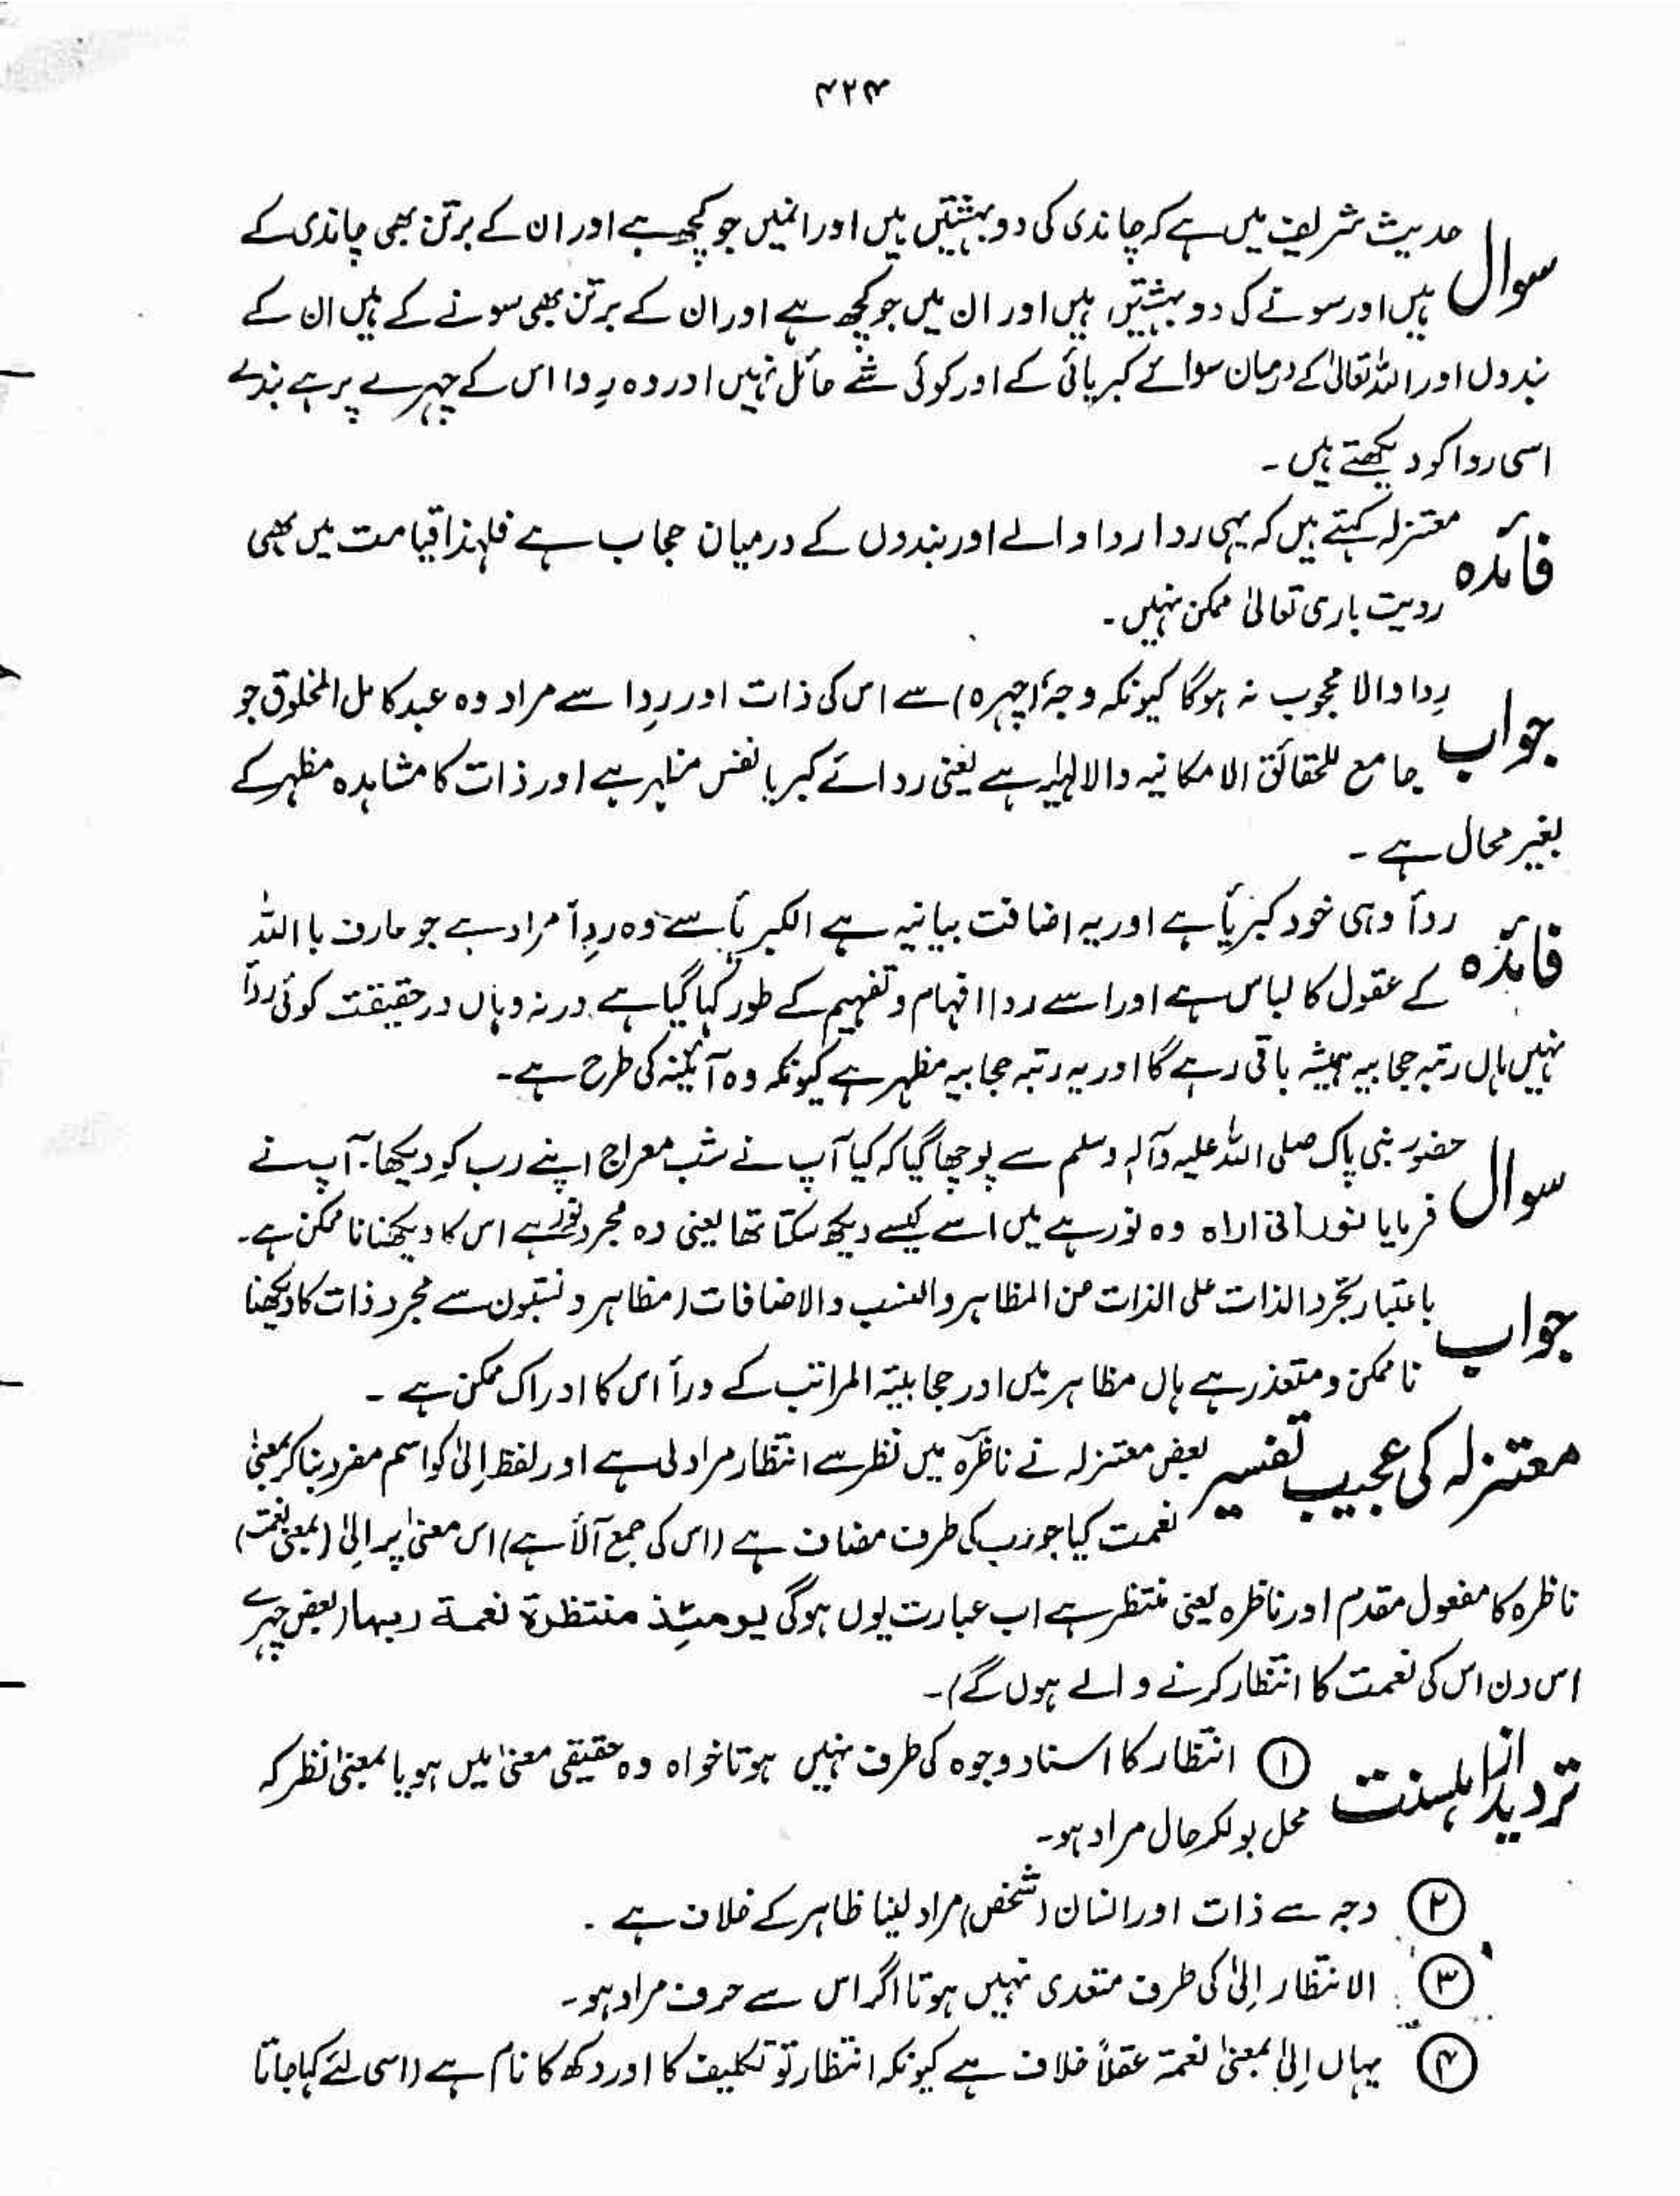 ۴۲۴
سوال حدیث شریف میں ہے کہ چاندی کی دو بہشتیں ہیں اور انمیں جو کچھ ہے اور ان کے برتن بھی چاندی کے
ہیں اور سونے کی دو بہشتیں ہیں اور ان میں جو کچھ ہے اور ان کے برتن بھی سونے کے ہیں ان کے
بندوں اور اللہ تعالیٰ کے درمیان سوائے کبریائی کے اور کوئی شے حائل نہیں اور وہ رِدا اس کے چہرے پر ہے بندے
اسی ردا کو دیکھتے ہیں ۔
فائدہ معتزلہ کہتے ہیں کہ یہی ردا ردا والے اور بندوں کے درمیان حجاب ہے فلہٰذا قیامت میں بھی
رویت باری تعالیٰ ممکن نہیں ۔
جواب رِدا والا محجوب نہ ہوگا کیونکہ وجہٗ (چہرہ) سے اس کی ذات اور رِدا سے مراد وہ عبد کامل المخلوق جو
جامع للحقائق الامکانیہ والالہٰیہ ہے یعنی ردائے کبریا نفس مظہر ہے اور ذات کا مشاہدہ مظہر کے
بغیر محال ہے ۔
فائدہ ردأ وہی خود کبریأ ہے اور یہ اضافت بیانیہ ہے الکبریأ سے وہ رِدأ مراد ہے جو عارف با اللہ
کے عقول کا لباس ہے اور اسے ردا افہام و تفہیم کے طور کہا گیا ہے ورنہ وہاں درحقیقت کوئی ردأ
نہیں ہاں رتبہ حجابیہ ہمیشہ باقی رہے گا اور یہ رتبہ حجابیہ مظہر ہے کیونکہ وہ آئینہ کی طرح ہے۔
سوال حضور نبی پاک صلی اللہ علیہ وآلہٖ وسلم سے پوچھا گیا کہ کیا آپ نے شب معراج اپنے رب کو دیکھا۔ آپ نے
فرمایا نورانی اراہ وہ نور ہے میں اسے کیسے دیکھ سکتا تھا یعنی وہ مجرد نور ہے اس کا دیکھنا ناممکن ہے۔
جواب باعتبار تجرد الذات علی الذات من المظاہر والنسب والاضافات (مظاہر و نسبتوں سے مجرد ذات کا دیکھنا
ناممکن و متعذر ہے ہاں مظاہر میں اور حجابیۃ المراتب کے ورأ اس کا ادراک ممکن ہے ۔
معتزلہ کی عجیب تفسیر بعض معتزلہ نے ناظرہ میں نظر سے انتظار مراد لی ہے اور لفظ اِلیٰ کو اسم مفرد بنا کر بمعنیٰ
نعمت کیا جو رب کی طرف مضاف ہے (اس کی جمع آلاٰ ہے) اس معنیٰ پر اِلیٰ (بمعنی نعمت)
ناظرہ کا مفعول مقدم اور ناظرہ یعنی منتظر ہے اب عبارت یوں ہوگی یومئذ منتظرۃ نعمۃ ربہا (بعض چہرے
اس دن اس کی نعمت کا انتظار کرنے والے ہوں گے)۔
تردید از اہلسنت ① انتظار کا اسناد وجوہ کی طرف نہیں ہوتا خواہ وہ حقیقی معنیٰ میں ہو یا بمعنیٰ نظر کہ
محل بولکر حال مراد ہو۔
② وجہ سے ذات اور انسان (شخص) مراد لینا ظاہر کے خلاف ہے ۔
③ الانتظار اِلیٰ کی طرف متعدی نہیں ہوتا اگر اس سے حرف مراد ہو۔
④ یہاں اِلیٰ بمعنیٰ نعمۃ عقلاً خلاف ہے کیونکہ انتظار تو تکلیف کا اور دکھ کا نام ہے (اسی لئے کہا جاتا